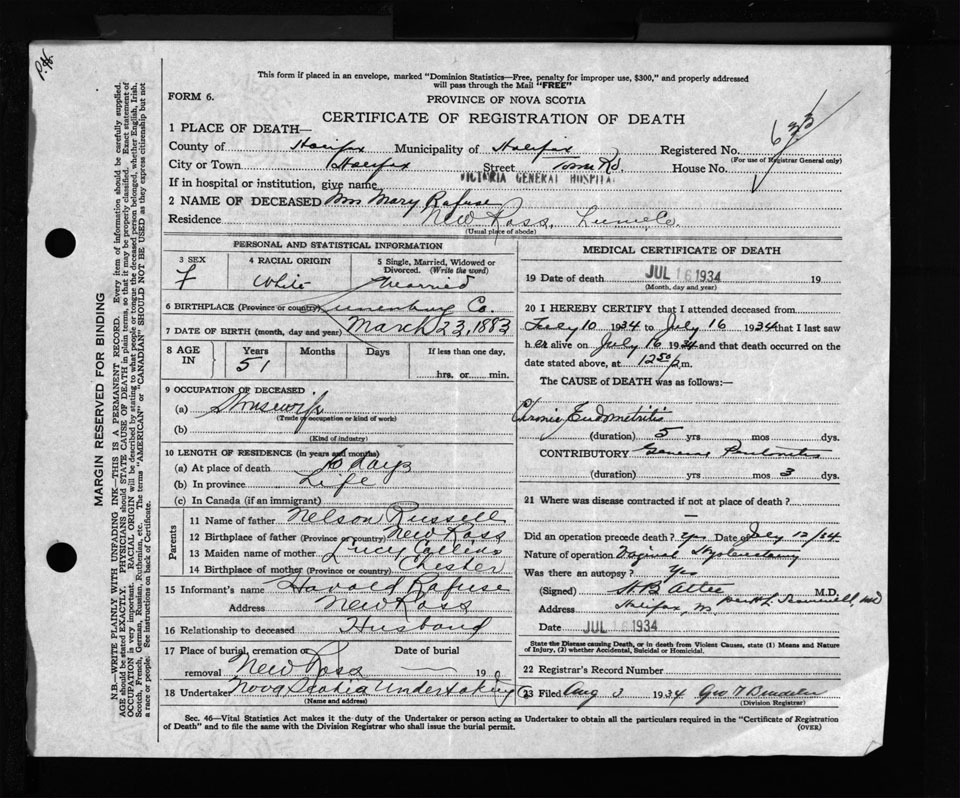 P.H.
This form if placed in an envelope, marked "Dominion Statistics—Free, penalty for improper use, $300," and properly addressed
will pass through the Mail "FREE"
FORM 6.
PROVINCE OF NOVA SCOTIA
CERTIFICATE OF REGISTRATION OF DEATH
1 PLACE OF DEATH—
County of Halifax Municipality of Halifax Registered No.
(For use of Registrar General only)
City or Town Halifax Street Rd. House No.
If in hospital or institution, give name VICTORIA GENERAL HOSPITAL
2 NAME OF DECEASED Mrs Mary Rafuse
Residence New Ross, Lune Co.
(Usual place of abode)
PERSONAL AND STATISTICAL INFORMATION
3 SEX F
4 RACIAL ORIGIN White
5 Single, Married, Widowed or Divorced. (Write the word) Married
6 BIRTHPLACE (Province or country) Lunenburg Co.
7 DATE OF BIRTH (month, day and year) March 23, 1883
8 AGE IN Years Months Days If less than one day.
51 hrs. or min.
9 OCCUPATION OF DECEASED
(a) Housewife
(Trade occupation or kind of work)
(b)
(Kind of industry)
10 LENGTH OF RESIDENCE (In years and months)
(a) At place of death days
(b) In province Life
(c) In Canada (if an immigrant)
Parents
11 Name of father Nelson Russell
12 Birthplace of father (Province or country) New Ross
13 Maiden name of mother Lucy Collins
14 Birthplace of mother (Province or country) Chester
15 Informant's name Harold Rafuse
Address New Ross
16 Relationship to deceased Husband
17 Place of burial, cremation or removal Date of burial
New Ross — 19
18 Undertaker Nova Scotia Undertaking Co
(Name and address)
MEDICAL CERTIFICATE OF DEATH
19 Date of death JUL 16 1934 19
(Month, day and year)
20 I HEREBY CERTIFY that I attended deceased from
July 10 1934 to July 16 1934 that I last saw
h er alive on July 16 1934 and that death occurred on the
date stated above, at 12 50 p m.
The CAUSE of DEATH was as follows:
Chronic Endometritis
(duration) 5 yrs mos dys.
CONTRIBUTORY General Peritonitis
(duration) yrs mos 3 dys.
21 Where was disease contracted if not at place of death?
—
Did an operation precede death? Yes Date of July 12/34
Nature of operation Vaginal Hysterectomy
Was there an autopsy? Yes
(Signed) M.D.
Address Halifax,
Date JUL 16 1934
State the Disease causing Death, or in death from Violent Causes, state (1) Means and Nature
of Injury, (2) whether Accidental, Suicidal or Homicidal.
22 Registrar's Record Number
23 Filed Aug 3 1934 Geo
(Division Registrar)
Sec. 46—Vital Statistics Act makes it the duty of the Undertaker or person acting as Undertaker to obtain all the particulars required in the "Certificate of Registration
of Death" and to file the same with the Division Registrar who shall issue the burial permit.
(OVER)
MARGIN RESERVED FOR BINDING
N.B.—WRITE PLAINLY WITH UNFADING INK—THIS IS A PERMANENT RECORD. Every item of information should be carefully supplied.
AGE should be stated EXACTLY. PHYSICIANS should STATE CAUSE OF DEATH in plain terms, so that it may be properly classified. Exact statement of
OCCUPATION is very important. RACIAL ORIGIN will be described by stating to what people or tongue the deceased person belonged, whether English, Irish,
Scotch, French, German, Russian, Ruthenian, etc. The terms "AMERICAN" or "CANADIAN" SHOULD NOT BE USED as they express citizenship but not
a race or people. See instructions on back of Certificate.